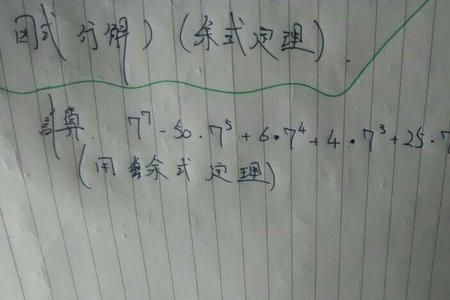 因式分解)(余式定理)
計算 7⁷-50·7⁵+6·7⁴+4·7³+25·7
(用余式定理)